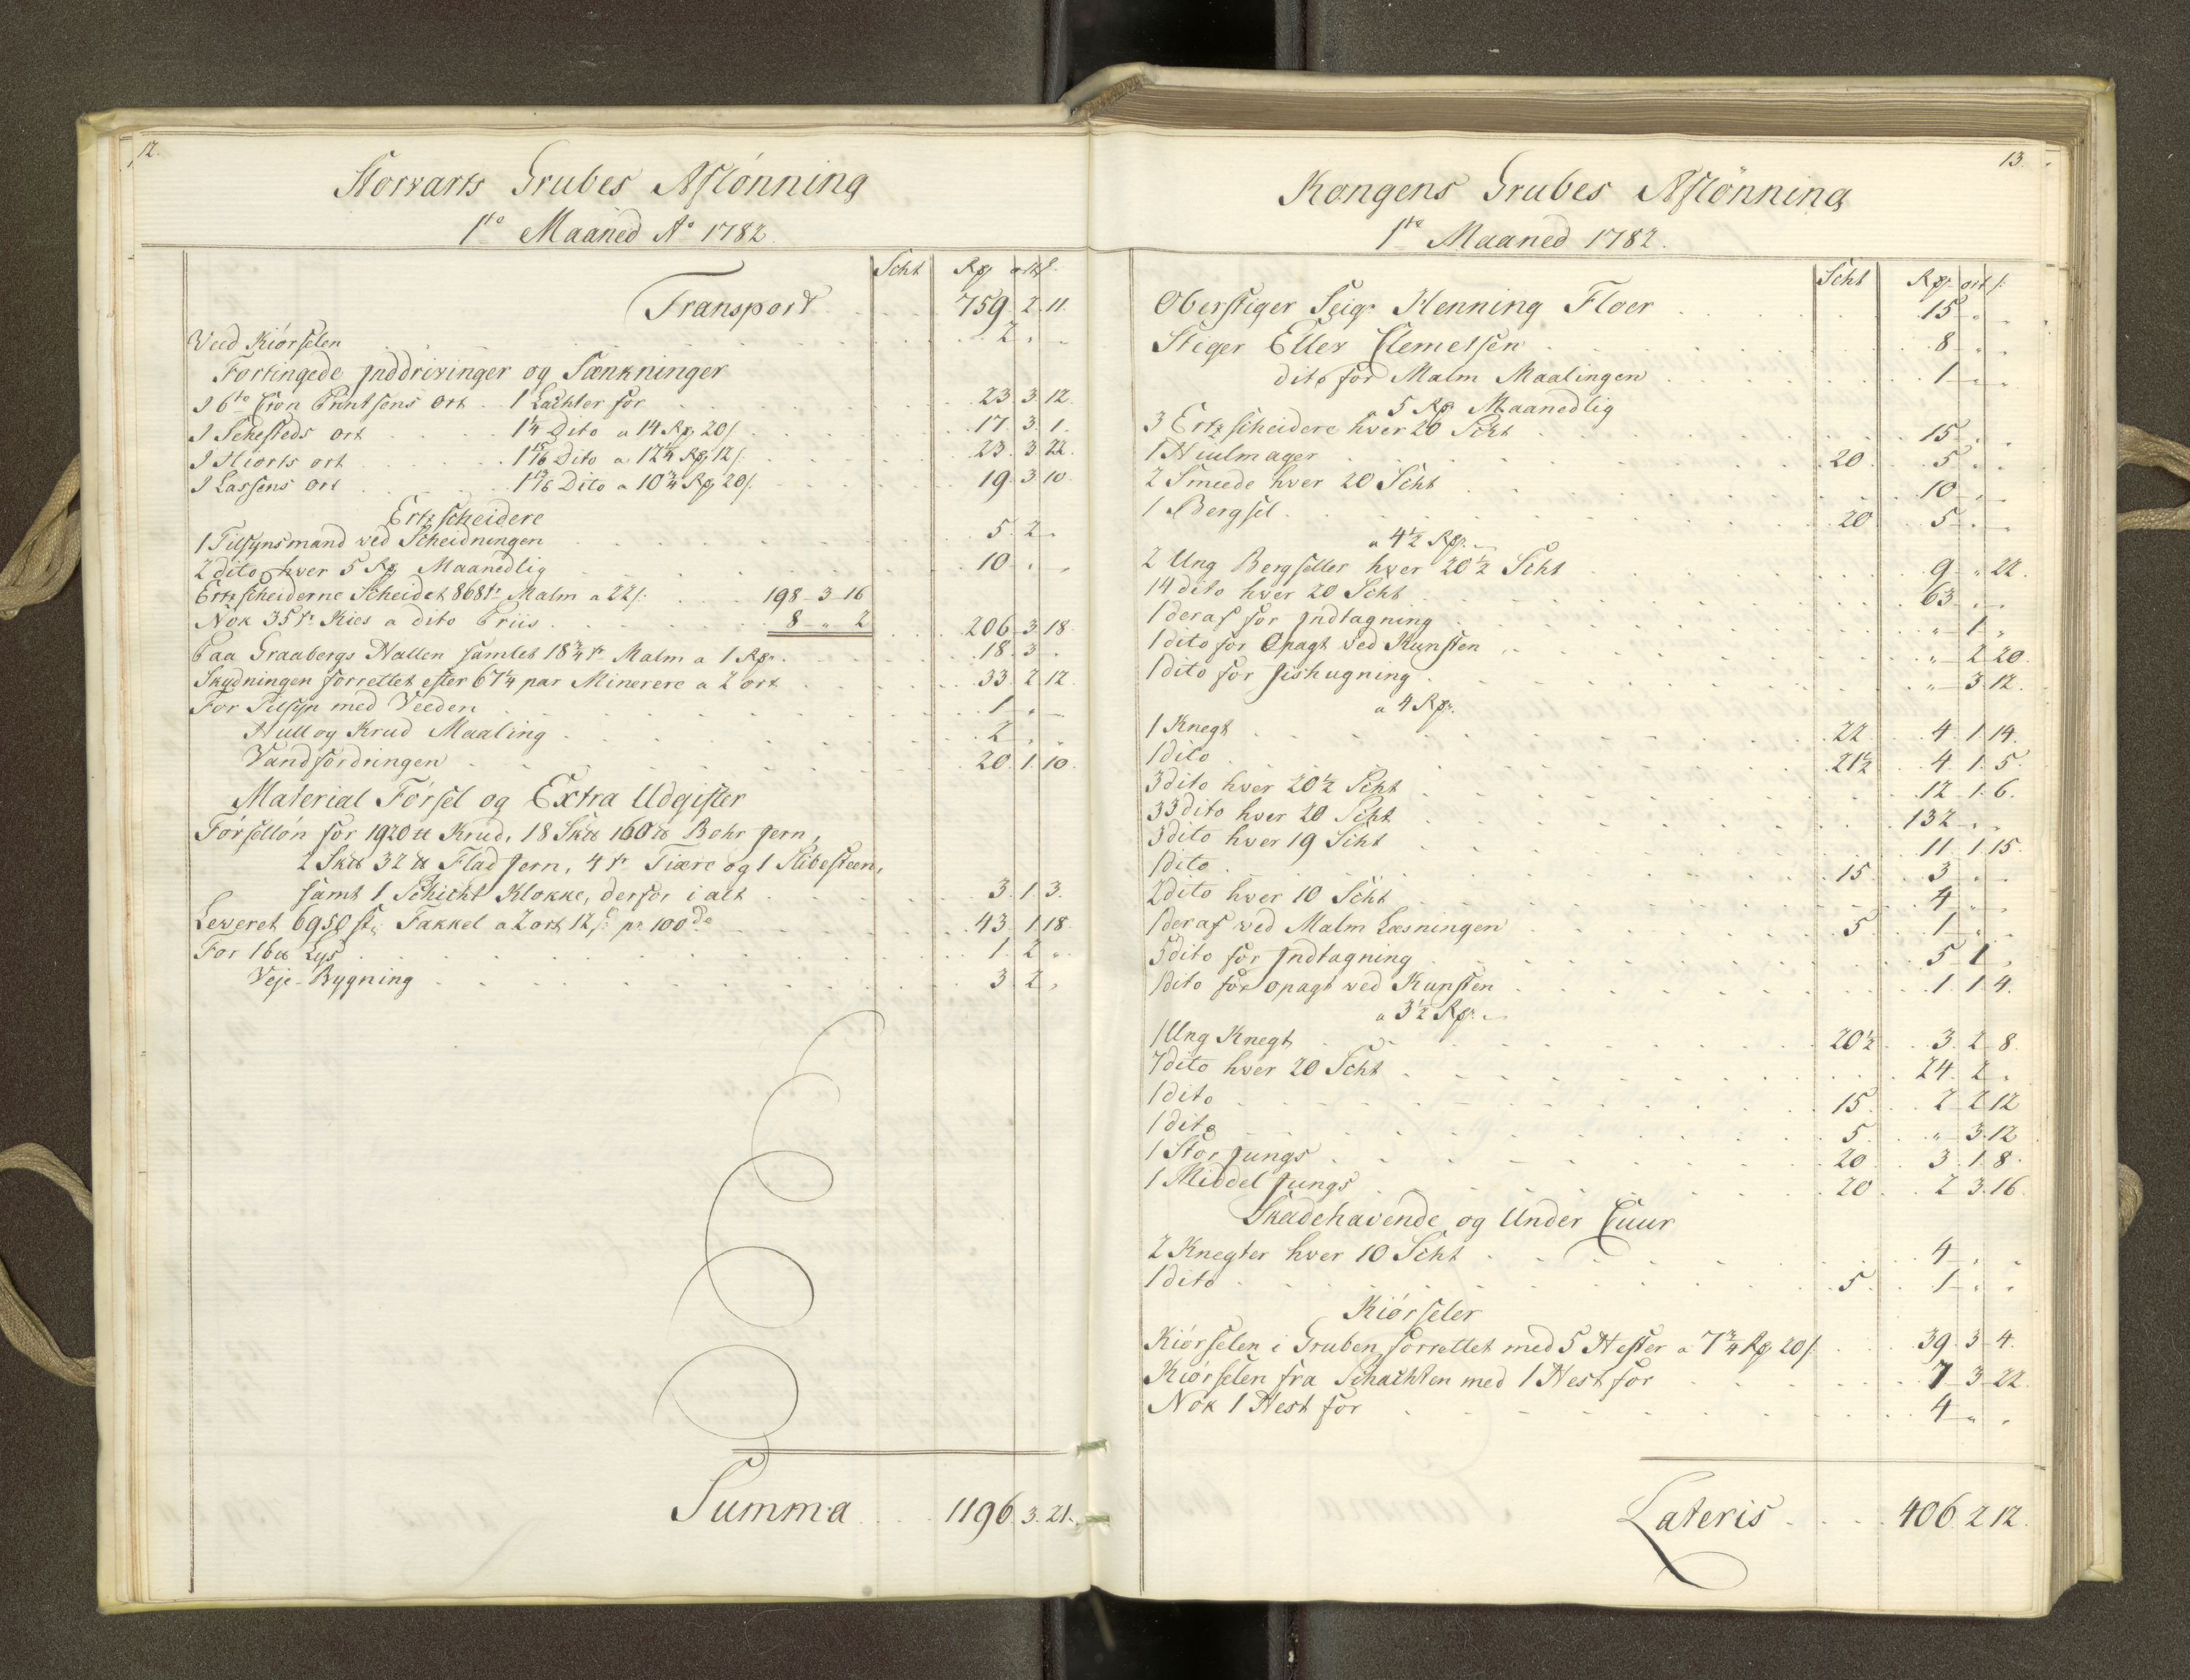 12.
Storvarts Grubes Aflönning
1te Maaned Ao 1782.
Scht Rdr ort s.
Transport . . . 759. 2. 11.
Veed Kiörselen . . . 2. " "
Fortingede Jnddrivinger og Sænkninger
J 6te Cron Printsens Ort . . 1 Lachter for . . . 23. 3. 12.
J Sehesteds ort . . . 1¼ Dito a 14 Rdr 20 s. . . . 17. 3. 1.
J Hiorts ort . . . 1 15/16 Dito a 12¼ Rdr 12 s. . . . 23. 3. 22.
J Lassens ort . . . 1 13/16 Dito a 10¾ Rdr 20 s. . . . 19. 3. 10.
Ertzscheidere
1 Tilsynsmand ved Scheidningen . . . 5. 2. "
2 dito hver 5 Rdr Maanedlig . . . 10. " "
Ertzscheiderne Scheidet 868 tr Malm a 22 s. . . . 198 - 3 - 16
Nok 35 tr Kies a dito Priis . . . 8 - " 2 . . . 206. 3. 18.
Paa Graabergs Hallen samlet 18¾ tr Malm a 1 Rdr. . . . 18. 3. "
Skydningen forrettet efter 67¼ par Minerere a 2 ort . . . 33. 2. 12.
For Tilsyn med Veeden . . . 1. " "
Hull og Krud Maaling . . . 2. " "
Vandfordringen . . . 20. 1. 10.
Material Försel og Extra Udgifter
Försellön for 1920 ℔ Krud, 18 Sk℔ 160 ℔ Bohr Jern,
2 Sk℔ 32 ℔ Flad Jern, 4 tr Tiære og 1 Slibesteen,
samt 1 Schicht Klokke, derfor i alt . . . 3. 1. 3.
Leveret 6950 st. Fakkel a 2 ort 12 s. pr 100de . . . 43. 1. 18.
For 16 ℔ Lys . . . 1. 2. "
Veje-Bygning . . . 3. 2. "
Summa . . . 1196. 3. 21.
13.
Kongens Grubes Aflönning
1te Maaned 1782.
Scht Rdr. ort s.
Oberstiger Seigr Henning Floer . . . 15. " "
Stiger Eller Clemetsen . . . 8. " "
dito for Malm Maalingen . . . 1. " "
a 5 Rdr Maanedlig
3 Ertzscheidere hver 20 Scht . . . 15. " "
1 Hiulmager . . . 20. 5. " "
2 Smeede hver 20 Scht . . . 10. " "
1 Bergsel . . . 20. 5. " "
a 4½ Rdr.
2 Ung Bergseller hver 20½ Scht . . . 9. " 22.
14 dito hver 20 Scht . . . 63. " "
1 deraf for Jndtagning . . . " 1. "
1 dito for Opagt ved Kunsten . . . " 2. 20.
1 dito for Jishugning . . . " 3. 12.
a 4 Rdr.
1 Knegt . . . 22 . . 4. 1. 14.
1 dito . . . 21½ . . 4. 1. 5.
3 dito hver 20½ Scht . . . 12. 1. 6.
33 dito hver 20 Scht . . . 132. " "
3 dito hver 19 Scht . . . 11. 1. 15.
1 dito . . . 15. 3. " "
2 dito hver 10 Scht . . . 4. " "
1 deraf ved Malm Læsningen . . . 5. 1. " "
5 dito for Jndtagning . . . 5. 1. "
1 dito for opagt ved Kunsten . . . 1. 1. 4.
a 3½ Rdr.
1 Ung Knegt . . . 20½ . . 3. 2. 8.
7 dito hver 20 Scht . . . 24. 2. "
1 dito . . . 15. 2. 2. 12
1 dito . . . 5. " 3. 12
1 Stor Jungs . . . 20. 3. 1. 8.
1 Middel Jungs . . . 20. 2. 3. 16.
Skadehavende og Under Cuur
2 Knegter hver 10 Scht . . . 4. " "
1 dito . . . 5. 1. " "
Kiörseler
Kiörselen i Gruben forrettet med 5 Hester a 7¾ Rdr 20 s. . . . 39. 3. 4.
Kiörselen fra Schachten med 1 Hest for . . . 7. 3. 22.
Nok 1 Hest for . . . 4. " "
Lateris . . . 406. 2. 12.